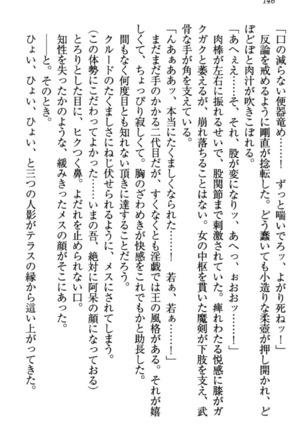 146
「口の減らない便器竜め……！　ずっと喘いでろッ、よがり死ねッ！」
反論を戒めるように剛直が捻転した。どう蠢いても小造りな柔壺が押し開かれ、ど
ぽどぽと肉汁が吹きこぼれる。
「あへぇぇ……そ、それ、股が変になりッ。あへっ、ぉおおッ……！」
肉棒が左右に振れるせいで、股関節まで刺激されてしまう。痺れわたる悦感に膝がガ
クガクと萎えるが、崩れ落ちることはない。女の中枢を貫いた魔剣が下肢を支え、武
骨な手が角を支えている。
「んあぁああッ、本当にたくましくなられたッ……！　若ぁ、若ぁッ……！」
まだまだ手のかかる二代目だが、すくなくとも淫戯には王の風格がある。それが嬉
しくて、ちょっぴり寂しくて。胸のざわめきが快感をこれでもかと助長した。
間もなく何度目とも知れない頂きに達することだろう。
クルードのたくましさにねじ伏せられるように、メスにされてしまう。
（この体勢にこだわってよかった……いまの吾、絶対に阿呆の顔になっておる）
とろりとした目に、ヒクつく鼻。よだれを止められない口。
知性を失ったかのような、緩みきったメスの顔がそこにあった。
――と。そのとき。
ひょい、ひょい、ひょい、と三つの人影がテラスの縁から這い上がってきた。